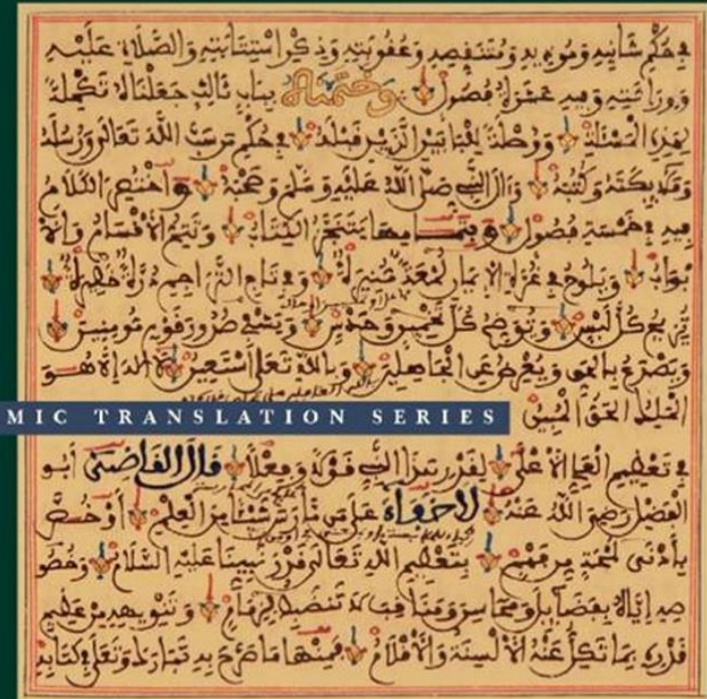 في حكم شانيه ومؤذيه ومتنقصه وعقوبته وذكر استتابته والصلاة عليه
ووراثته وفيه عشرة فصول وختمناه بباب ثالث جعلناه تكملة
لهذه المسئلة ووصلة للبابين الذين قبله في حكم من سب الله تعالى ورسله
وملائكته وكتبه وءال النبي صلى الله عليه وسلم وصحبه واختصر الكلام
فيه في خمسة فصول وبتمامها ينتجز الكتاب وتتم الاقسام والا
بواب ويلوح في غرة الايمان لمعة منيرة وفي تاج التراجم درة خطيرة
تزيح كل لبس وتوضح كل تخمين وحدس وتشفي صدور قوم مومنين
وتصدع بالحق وتعرض عن الجاهلين وبالله تعلى أستعين لا اله الا هو
الملك الحق المبين
MIC TRANSLATION SERIES
في تعظيم العلي الاعلى لقدر هذا النبي قولا وفعلا قال القاضي أبو
الفضل رضي الله عنه لا خفاء على من مارس شيئا من العلم أو خص
بأدنى لمحة من فهم بتعظيم الله تعالى قدر نبينا عليه السلام وخصو
صه إياه بفضايل ومحاسن ومناقب لا تنضبط لزمام وتنويهه من عظيم
قدره بما تكل عنه الالسنة والاقلام فمنها ما صرح به تبارك وتعلى في كتابه